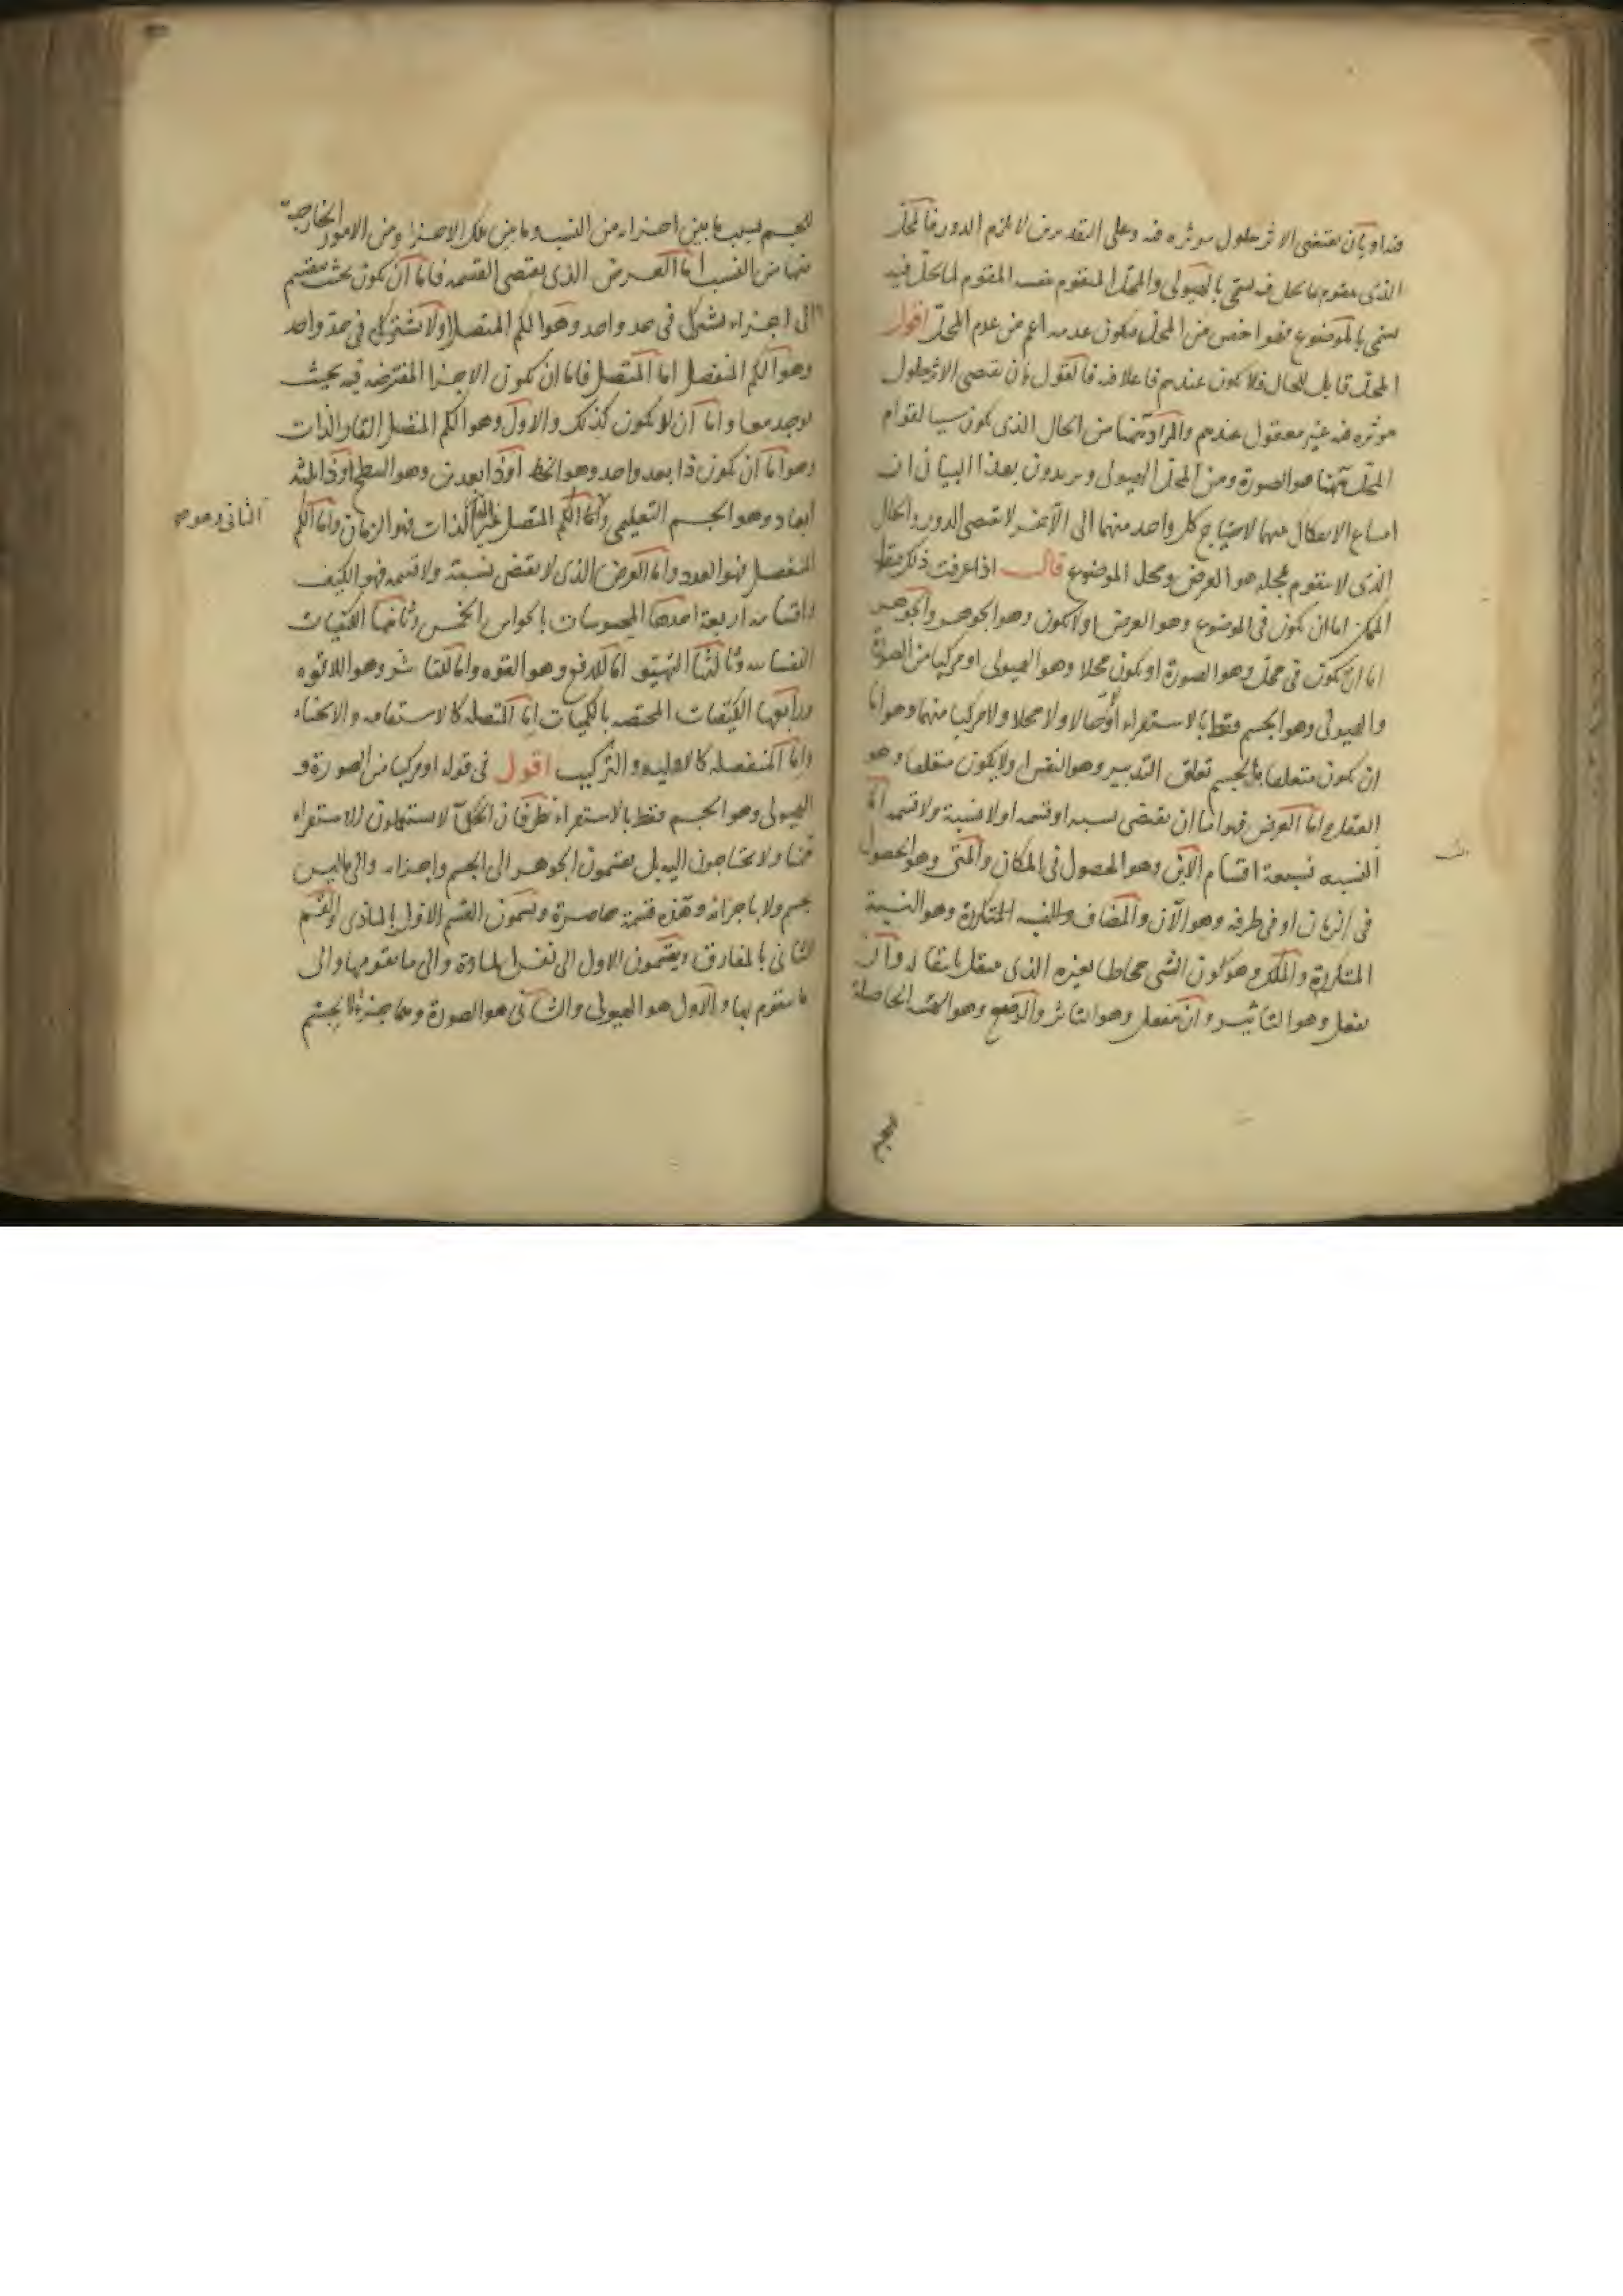 فيه او بأن يقتضى الاثر حلول موثره فيه وعلى التقديرين لا يلزم الدور فالمحل
الذى يتقوم بما يحل فيه يسمى بالهيولى والمحل المتقوم بنفسه المقوم لما يحل فيه
يسمى بالموضوع فهو اخص من المحل فيكون عدمه اعم من عدم المحل اقول
المحل قابل للحال فلا يكون عندهم فاعلا فيه فالقول بأن يقتضى الاثر حلول
موثره فيه غير معقول عندهم والمراد هٰهنا من الحال الذى يكون سببا لقوام
المحل هٰهنا هو الصورة ومن المحل الهيولى ويريدون بهذا البيان ان
امتناع الانفكاك بينهما لاحتياج كل واحد منهما الى الآخر لا يقتضى الدور والحال
الذى لا يتقوم محله هو العرض ومحل الموضوع قال اذا عرفت ذلك فنقول
الممكن اما ان يكون فى الموضوع وهو العرض او لا يكون وهو الجوهر والجوهر
اما ان يكون فى محل وهو الصورة او يكون محلا وهو الهيولى او مركبا من الصورة
والهيولى وهو الجسم فقط بالاستقراء او لا حالا ولا محلا ولا مركبا منهما وهو اما
ان يكون متعلقا بالجسم تعلق التدبير وهو النفس او لا يكون متعلقا وهو
العقل واما العرض فهو اما ان يقتضى نسبة او قسمة او لا نسبة ولا قسمة اما
النسبة فسبعة اقسام الاين وهو الحصول فى المكان والمتى وهو الحصول
فى الزمان او فى طرفه وهو الآن والمضاف والنسبة المتكررة وهو النسبة
المتكررة والملك وهو كون الشى محاطا بغيره الذى ينتقل بانتقاله وان
يفعل وهو التاثير وان ينفعل وهو التاثر والوضع وهو الهيئة الحاصلة
للجسم
للجسم بسبب ما بين اجزائه من النسب وما بين تلك الاجزا ومن الامور الخارجة
عنها من النسب اما العرض الذى يقتضى القسمة فاما ان يكون بحيث ينقسم
الى اجزاء تشترك فى حد واحد وهو الكم المتصل او لا تشترك فى حد واحد
وهو الكم المنفصل اما المتصل فاما ان يكون الاجزا المفترضة فيه بحيث
يوجد معا واما ان لا يكون كذلك والاول وهو الكم المتصل القار الذات
وهو اما ان يكون ذا بعد واحد وهو الخط او ذا بعدين وهو السطح او ذا ثلثة
ابعاد وهو الجسم التعليمى واما الكم المتصل غير القار الذات فهو الزمان واما الكم
الثانى وهو
المنفصل فهو العدد واما العرض الذى لا يقتضى نسبة ولا قسمة فهو الكيف
واقسامه اربعة احدها المحسوسات بالحواس الخمس وثانيها الكيفيات
النفسانية وثالثها التهيؤ اما للدفع وهو القوة واما للتاثر وهو اللاقوة
ورابعها الكيفيات المختصة بالكميات اما المتصلة كالاستقامة والانحناء
واما المنفصلة كالاولية والتركيب اقول فى قوله او مركبا من الصورة و
الهيولى وهو الجسم فقط بالاستقراء نظر فان الحكماء لا يستعملون الاستقراء
هنا ولا يحتاجون اليه بل يقسمون الجوهر الى الجسم واجزائه والى ما ليس
بجسم ولا باجزائه وهذه قسمة حاصرة ويسمون القسم الاول بالمادى والقسم
الثانى بالمفارق ويقسمون الاول الى نفس المادة والى ما يقومها والى
ما يتقوم بها والاول هو الهيولى والثانى هو الصورة وهما جزءا الجسم